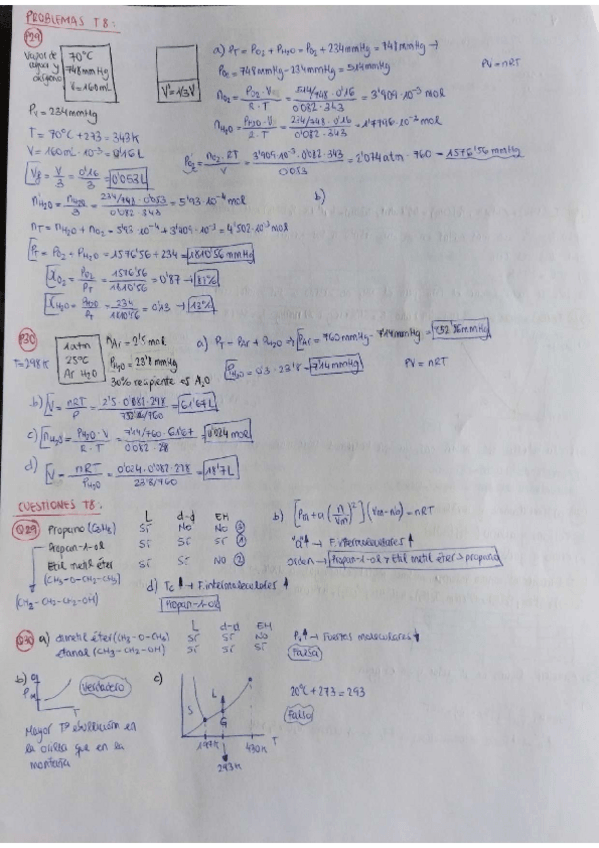 PROBLEMAS T8:
P29
Vapor de agua y oxígeno
70°C
748mmHg
V=160mL
V'=1/3V
a) PT = PO2 + PH2O = PO2 + 234mmHg = 748mmHg →
PO2 = 748mmHg - 234mmHg = 514mmHg
PV = nRT
nO2 = PO2·V / R·T = 514/748·0'16 / 0'082·343 = 3'909·10⁻³ mol
nH2O = PH2O·V / R·T = 234/748·0'16 / 0'082·343 = 1'7796·10⁻³ mol
PV = 234mmHg
T = 70°C + 273 = 343K
V = 160mL·10⁻³ = 0'16L
P'O2 = nO2·RT / V = 3'909·10⁻³·0'082·343 / 0'053 = 2'074atm·760 = 1576'56mmHg
Vf = V/3 = 0'16/3 = 0'053L
b)
nT = nH2O + nO2 = 5'93·10⁻⁴ + 3'909·10⁻³ = 4'502·10⁻³ mol
PT = PO2 + PH2O = 1576'56 + 234 = 1810'56mmHg
XO2 = PO2/PT = 1576'56/1810'56 = 0'87 → 87%
XH2O = PH2O/PT = 234/1810'56 = 0'13 → 13%
P30
T=298K
1atm
25°C
Ar H2O
nAr = 2'5 mol
PH2O = 23'8 mmHg
30% recipiente es H2O
a) PT = PAr + PH2O ⇒ PAr = 760mmHg - 7'14mmHg = 752'86mmHg
PH2O = 0'3·23'8 = 7'14mmHg
PV = nRT
b) V = nRT/P = 2'5·0'082·298 / 752'86/760 = 61'67L
c) nH2O = PH2O·V / R·T = 7'14/760·61'67 / 0'082·298 = 0'024 mol
d) V = nRT/PH2O = 0'024·0'082·298 / 23'8/760 = 18'7L
CUESTIONES T8:
L d-d EH
Q29 Propano (C3H8) SÍ NO NO 3
Propan-1-ol SÍ SÍ SÍ 1
Etil metil éter SÍ SÍ NO 2
(CH3-O-CH2-CH3)
(CH2-CH2-CH2-OH)
b) [Pm + a(n/Vm)²](Vm-nb) = nRT
"a"↑ → F. intermoleculares ↑
orden → Propan-1-ol > Etil metil éter > propano
d) Tc ↑ → F. intermoleculares ↑
Propan-1-ol
L d-d EH
Q30 a) dimetil éter (CH3-O-CH3) SÍ SÍ NO
etanol (CH3-CH2-OH) SÍ SÍ SÍ
Pv↑ → Fuerzas moleculares ↓
Falsa
b)
T
Verdadero
Mayor Tª ebullición en
la olilla que en la
montaña
c)
S
L
G
T
293K
430K
20°C + 273 = 293
Falso